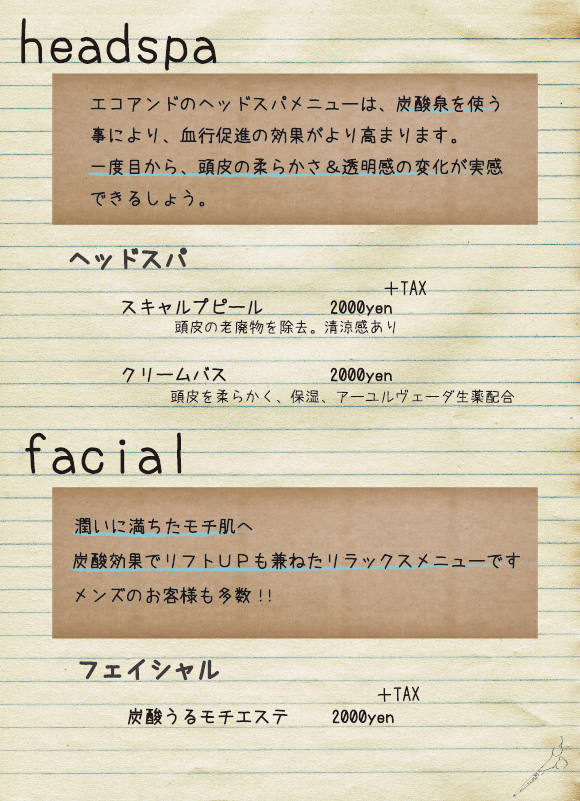 headspa
エコアンドのヘッドスパメニューは、炭酸泉を使う
事により、血行促進の効果がより高まります。
一度目から、頭皮の柔らかさ＆透明感の変化が実感
できるしょう。
ヘッドスパ
＋TAX
スキャルプピール 2000yen
頭皮の老廃物を除去。清涼感あり
クリームバス 2000yen
頭皮を柔らかく、保湿、アーユルヴェーダ生薬配合
facial
潤いに満ちたモチ肌へ
炭酸効果でリフトＵＰも兼ねたリラックスメニューです
メンズのお客様も多数!!
フェイシャル
＋TAX
炭酸うるモチエステ 2000yen